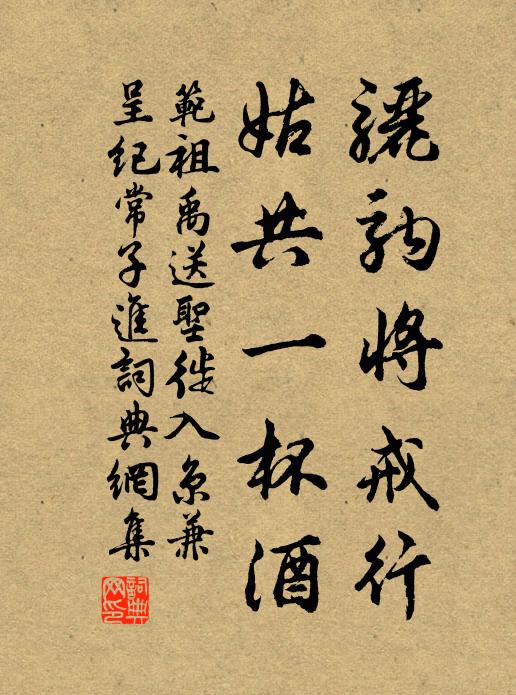 驪駒將戒行
姑共一杯酒
範祖禹送聖徒入京兼
呈紀常子進詞典網集
詞典網印